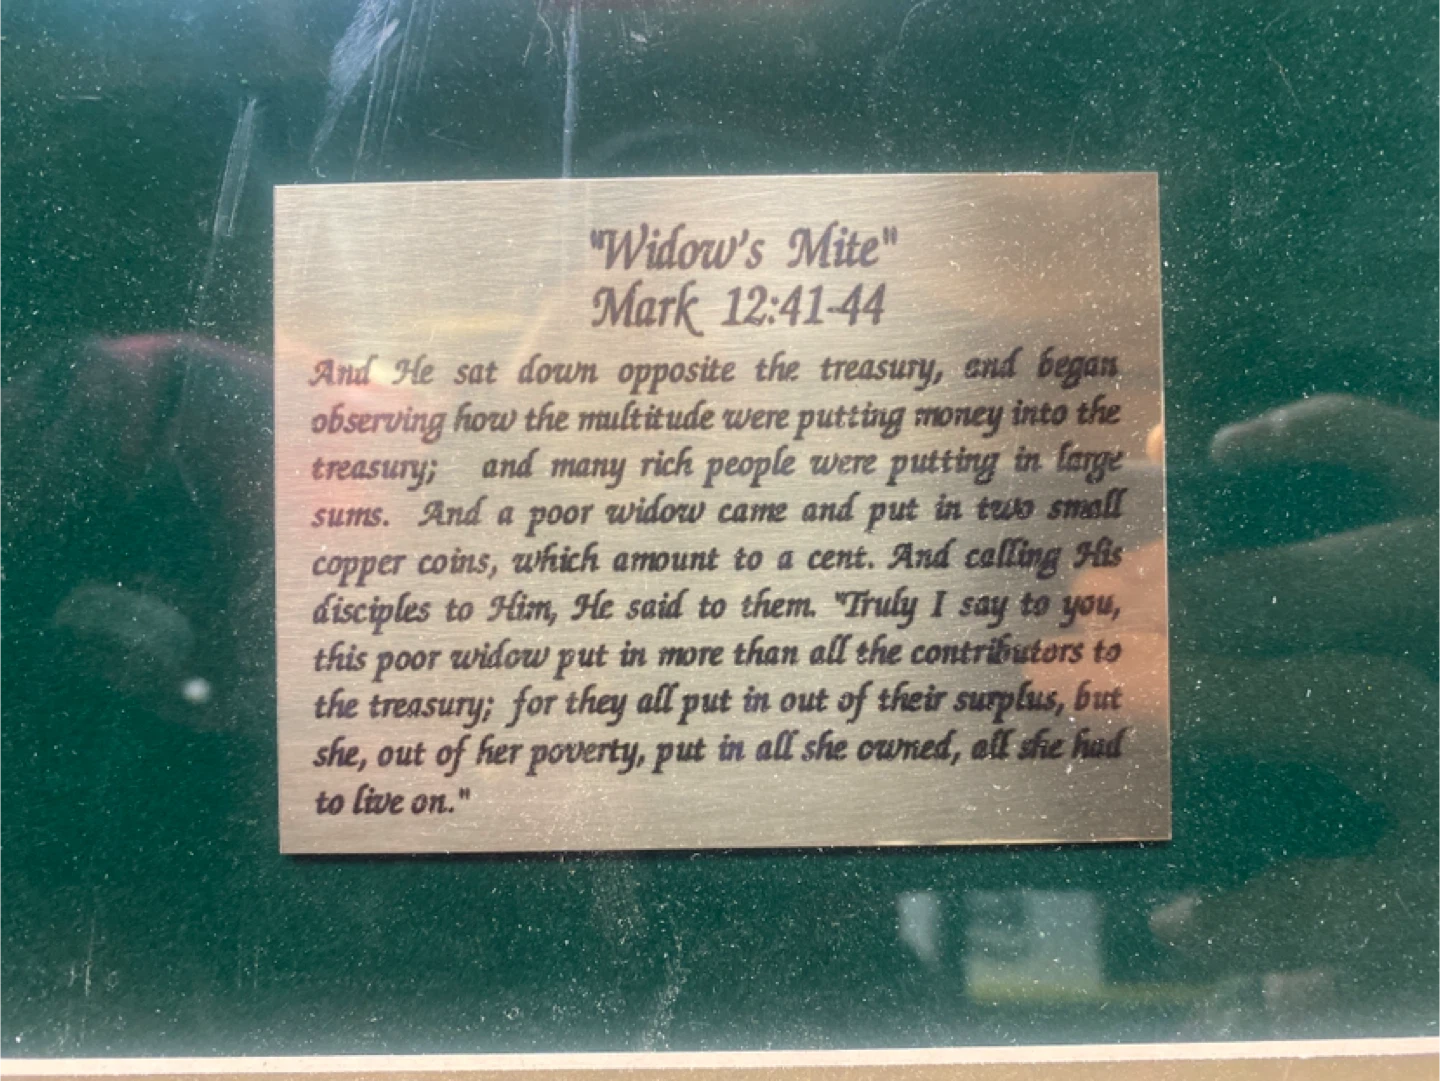 "Widow's Mite"
Mark 12:41-44
And He sat down opposite the treasury, and began
observing how the multitude were putting money into the
treasury; and many rich people were putting in large
sums. And a poor widow came and put in two small
copper coins, which amount to a cent. And calling His
disciples to Him, He said to them. "Truly I say to you,
this poor widow put in more than all the contributors to
the treasury; for they all put in out of their surplus, but
she, out of her poverty, put in all she owned, all she had
to live on."